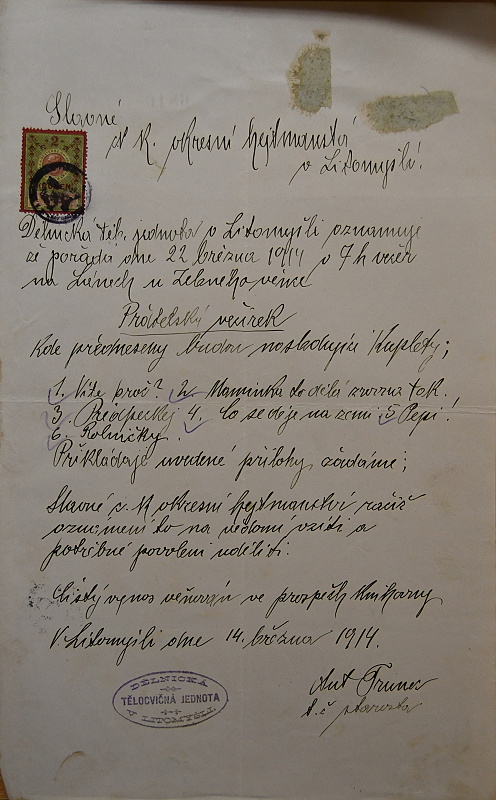 Slavné
K. okresní hejtmanství
v Litomyšli!
2
Dělnická těl. jednota v Litomyšli oznamuje
že pořádá dne 22 března 1914 v 7 h večer
na Lánech u Zeleného věnce
Přátelský večírek
Kde předneseny budou následující Kuplety;
1. Víte proč? 2. Maminka to dělá zrovna tak.
3. 4. Co se děje na zemi 5 Pepi!
6. Rolničky.
Přikládaje uvedené přílohy žádáme;
Slavné c. K okresní hejtmanství račiž
oznámení to na vědomí vzíti a
potřebné povolení uděliti.
Čistý výnos věnován ve prospěch Knihovny
V Litomyšli dne 14. března 1914.
DĚLNICKÁ
TĚLOCVIČNÁ JEDNOTA
V LITOMYŠLI.
Ant
t. č starosta